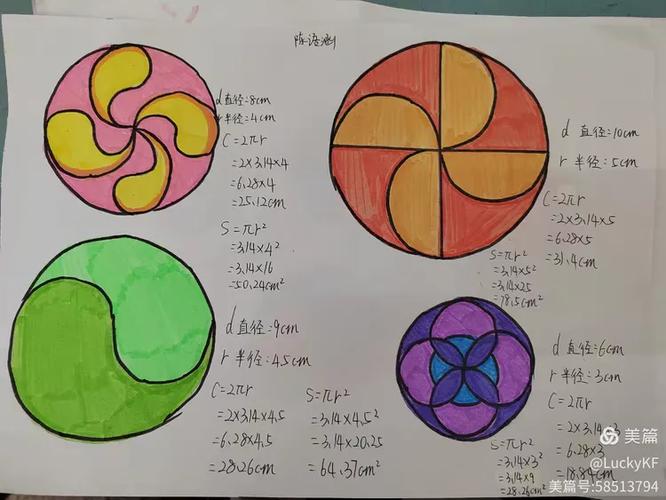 陈语涵
d 直径=8cm
r 半径=4cm
C=2πr
=2×3.14×4
=6.28×4
=25.12cm
S=πr²
=3.14×4²
=3.14×16
=50.24cm²
d 直径=10cm
r 半径=5cm
C=2πr
=2×3.14×5
=6.28×5
=31.4cm
S=πr²
=3.14×5²
=3.14×25
=78.5cm²
d 直径=9cm
r 半径=4.5cm
C=2πr
=2×3.14×4.5
=6.28×4.5
=28.26cm
S=πr²
=3.14×4.5²
=3.14×20.25
=64.37cm²
d 直径=6cm
r 半径=3cm
C=2πr
=2×3.14×3
=6.28×3
=18.84cm
S=πr²
=3.14×3²
=3.14×9
=28.26cm²
美篇
@LuckyKF
美篇号:58513794